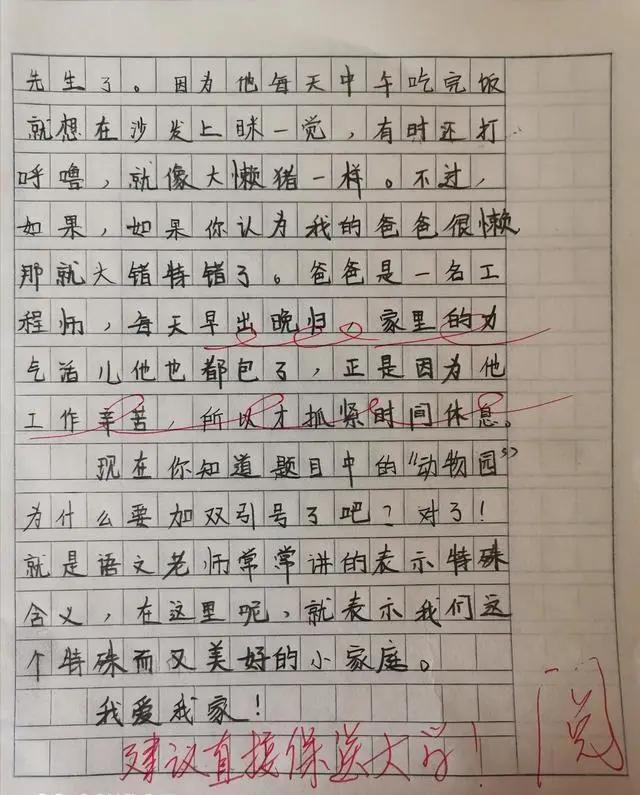 先生了。因为他每天中午吃完饭
就想在沙发上眯一觉，有时还打
呼噜，就像大懒猪一样。不过，
如果，如果你认为我的爸爸很懒
那就大错特错了。爸爸是一名工
程师，每天早出晚归，家里的力
气活儿他也都包了，正是因为他
工作辛苦，所以才抓紧时间休息。
现在你知道题目中的“动物园”
为什么要加双引号了吧？对了！
就是语文老师常常讲的表示特殊
含义，在这里呢，就表示我们这
个特殊而又美好的小家庭。
我爱我家！
建议直接保送大学！
阅